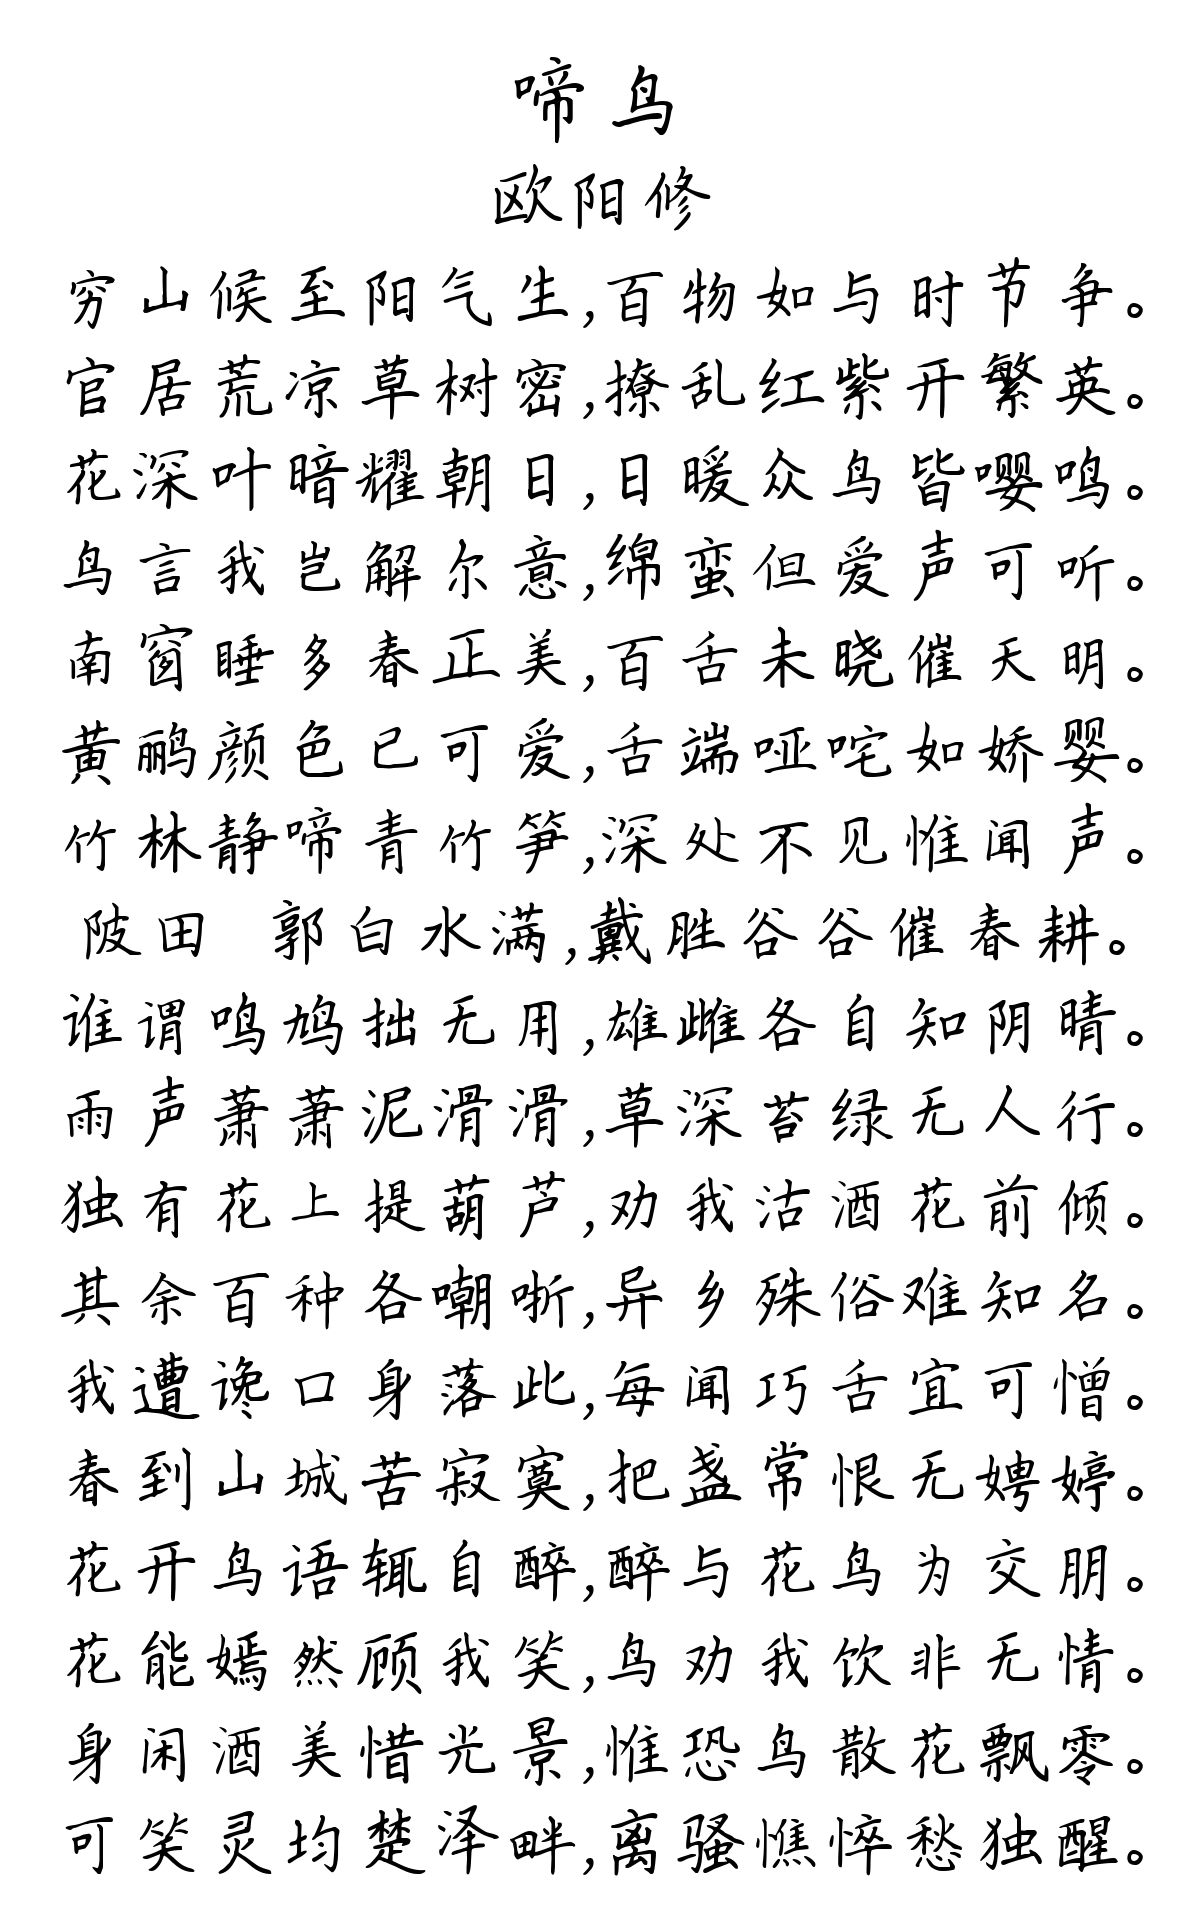 啼鸟
欧阳修
穷山候至阳气生,百物如与时节争。
官居荒凉草树密,撩乱红紫开繁英。
花深叶暗耀朝日,日暖众鸟皆嘤鸣。
鸟言我岂解尔意,绵蛮但爱声可听。
南窗睡多春正美,百舌未晓催天明。
黄鹂颜色已可爱,舌端哑咤如娇婴。
竹林静啼青竹笋,深处不见惟闻声。
陂田 郭白水满,戴胜谷谷催春耕。
谁谓鸣鸠拙无用,雄雌各自知阴晴。
雨声萧萧泥滑滑,草深苔绿无人行。
独有花上提葫芦,劝我沽酒花前倾。
其余百种各嘲哳,异乡殊俗难知名。
我遭谗口身落此,每闻巧舌宜可憎。
春到山城苦寂寞,把盏常恨无娉婷。
花开鸟语辄自醉,醉与花鸟为交朋。
花能嫣然顾我笑,鸟劝我饮非无情。
身闲酒美惜光景,惟恐鸟散花飘零。
可笑灵均楚泽畔,离骚憔悴愁独醒。